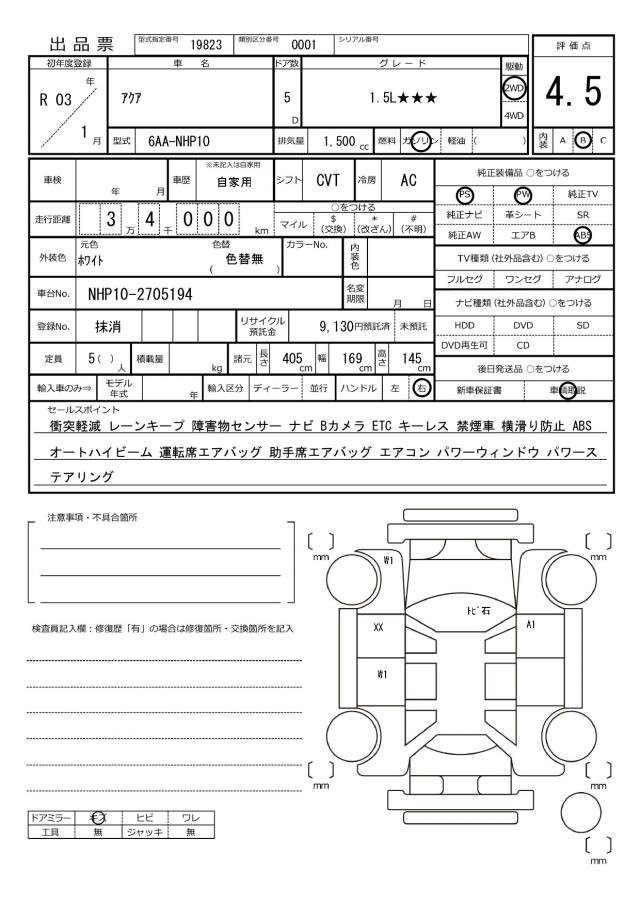 出品票 型式指定番号 19823 類別区分番号 0001 シリアル番号
評価点
4.5
内装 A B C
初年度登録 車名 ドア数 グレード 駆動
R 03 年 / 1 月 アクア 5 D 1.5L★★★ 2WD 4WD
型式 6AA-NHP10 排気量 1,500 cc 燃料 ガソリン 軽油 ( )
車検 年 月 車歴 ※未記入は自家用 自家用 シフト CVT 冷房 AC
走行距離 3 万 4 千 0 0 0 km
○をつける
マイル $(交換) *(改ざん) #(不明)
外装色 元色 ホワイト 色替 ( 色替無 ) カラーNo. 内装色
車台No. NHP10-2705194 名変期限 月 日
登録No. 抹消 リサイクル預託金 9,130円預託済 未預託
定員 5 ( ) 人 積載量 kg 諸元 長さ 405 cm 幅 169 cm 高さ 145 cm
輸入車のみ⇒ モデル年式 年 輸入区分 ディーラー 並行 ハンドル 左 右
純正装備品 ○をつける
PS PW 純正TV
純正ナビ 革シート SR
純正AW エアB ABS
TV種類(社外品含む) ○をつける
フルセグ ワンセグ アナログ
ナビ種類(社外品含む) ○をつける
HDD DVD SD
DVD再生可 CD
後日発送品 ○をつける
新車保証書 車輌取説
セールスポイント
衝突軽減 レーンキープ 障害物センサー ナビ Bカメラ ETC キーレス 禁煙車 横滑り防止 ABS
オートハイビーム 運転席エアバッグ 助手席エアバッグ エアコン パワーウィンドウ パワース
テアリング
注意事項・不具合箇所
検査員記入欄：修復歴「有」の場合は修復箇所・交換箇所を記入
ドアミラー キズ ヒビ ワレ
工具 無 ジャッキ 無
mm
mm
W1
トビ石
XX
A1
W1
mm
mm
mm